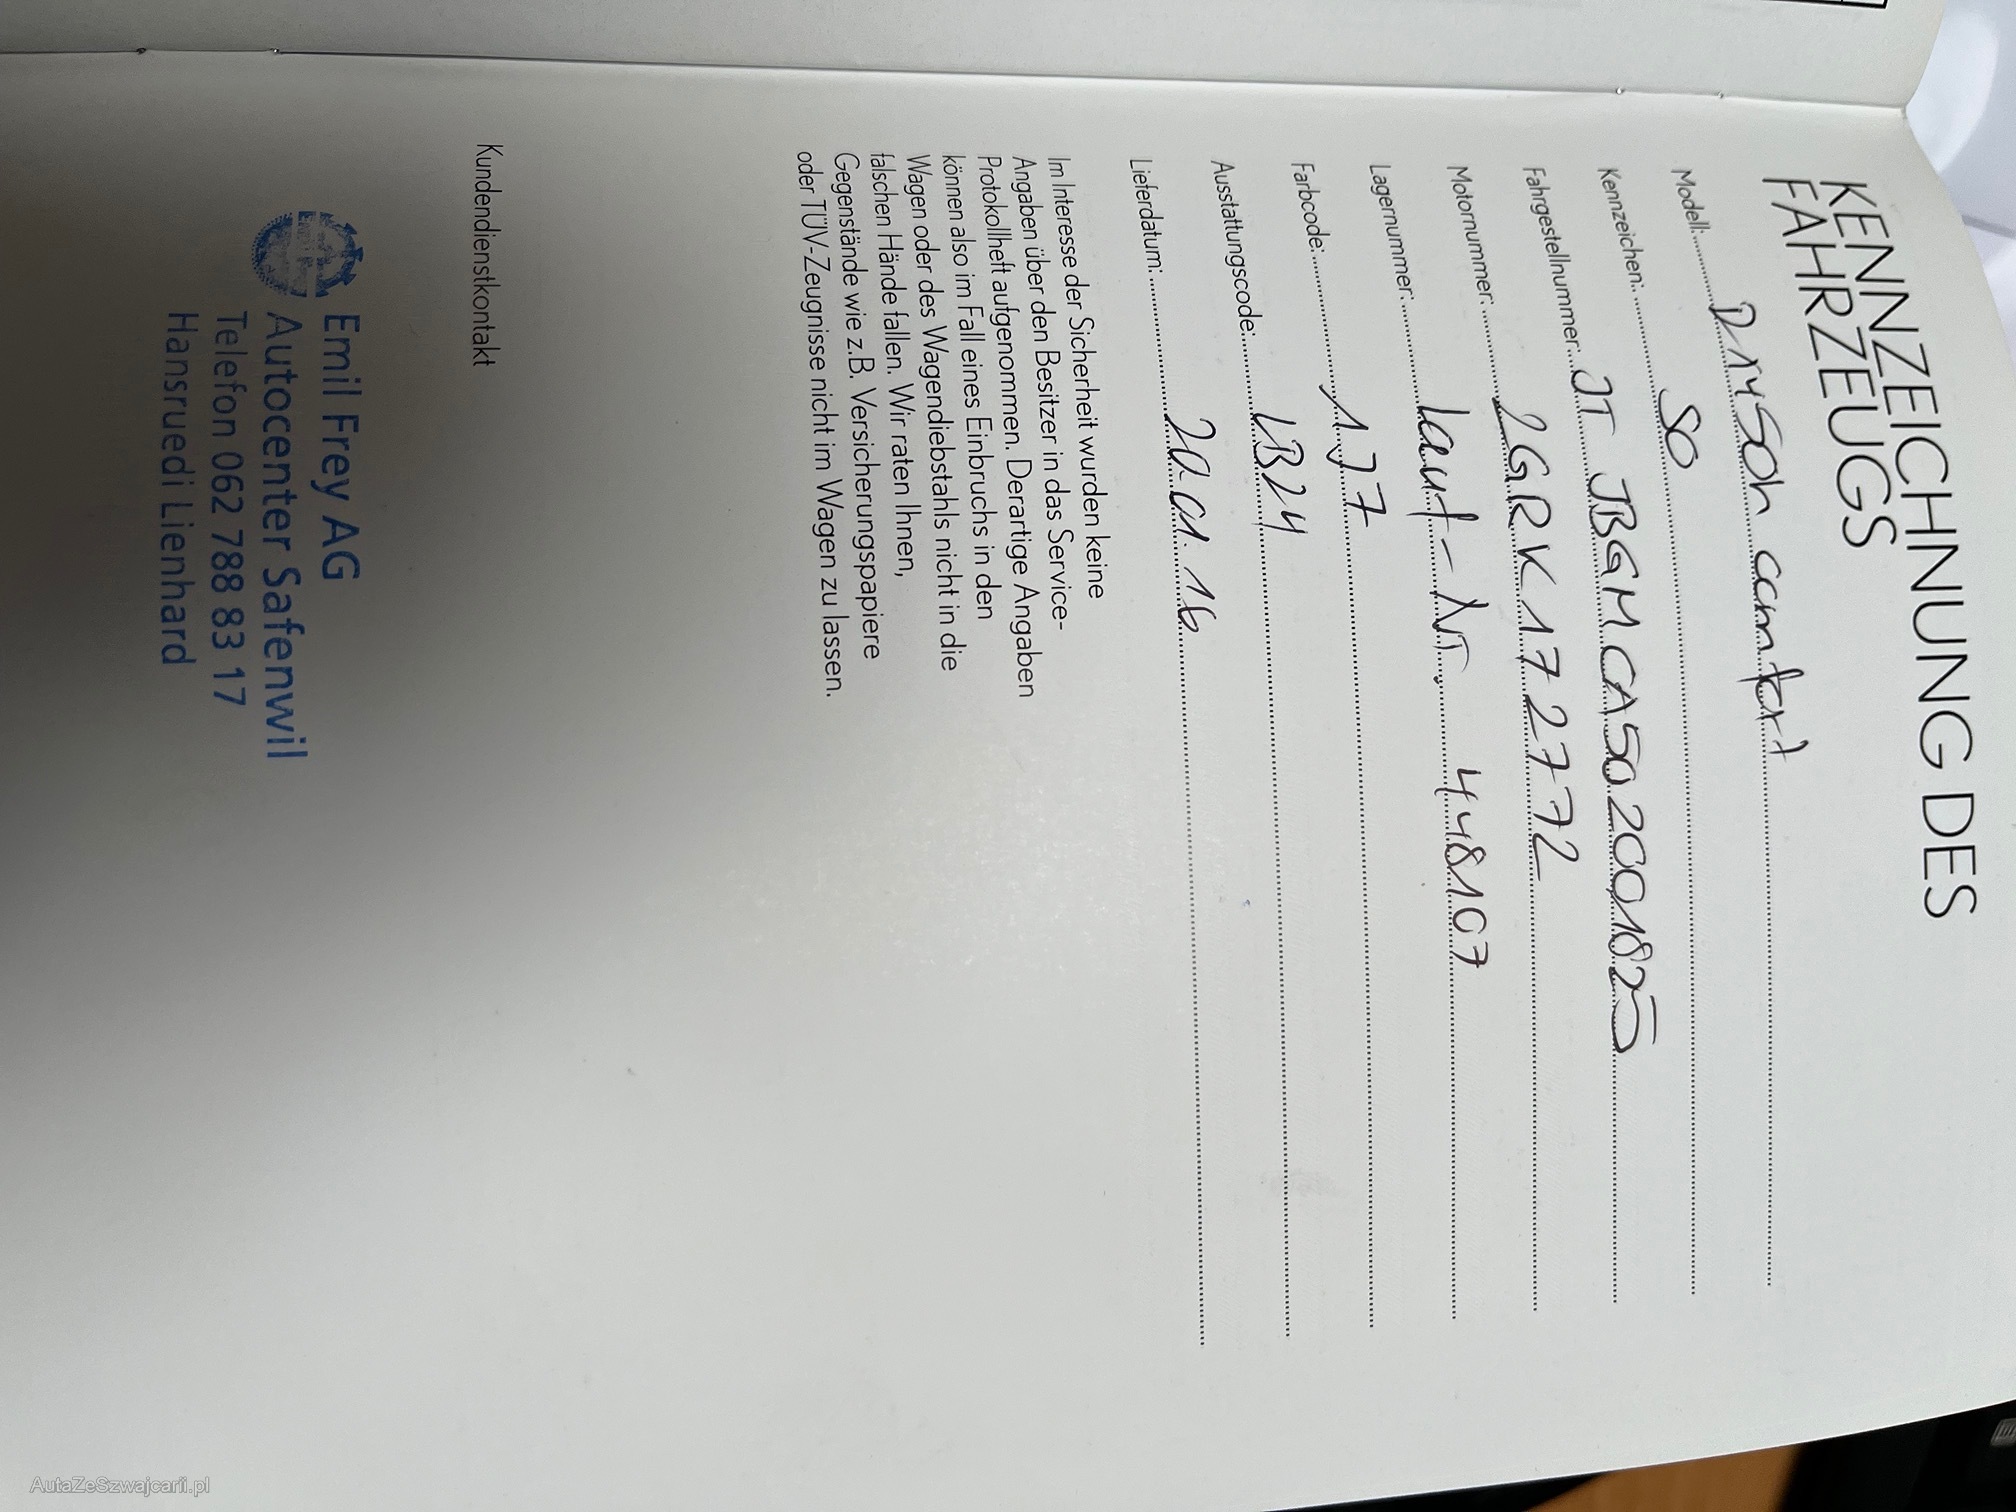 KENNZEICHNUNG DES
FAHRZEUGS
Modell: DAYSON comfort
Kennzeichen: SO
Fahrgestellnummer: JT JBGMCA502001825
Motornummer: 2GRK172772
Lagernummer: Lauf-Nr. 448107
Farbcode: 1J7
Ausstattungscode: LB24
Lieferdatum: 20.01.16
Im Interesse der Sicherheit wurden keine
Angaben über den Besitzer in das Service-
Protokollheft aufgenommen. Derartige Angaben
können also im Fall eines Einbruchs in den
Wagen oder des Wagendiebstahls nicht in die
falschen Hände fallen. Wir raten Ihnen,
Gegenstände wie z.B. Versicherungspapiere
oder TÜV-Zeugnisse nicht im Wagen zu lassen.
Kundendienstkontakt
Emil Frey AG
Autocenter Safenwil
Telefon 062 788 83 17
Hansruedi Lienhard
AutaZeSzwajcarii.pl